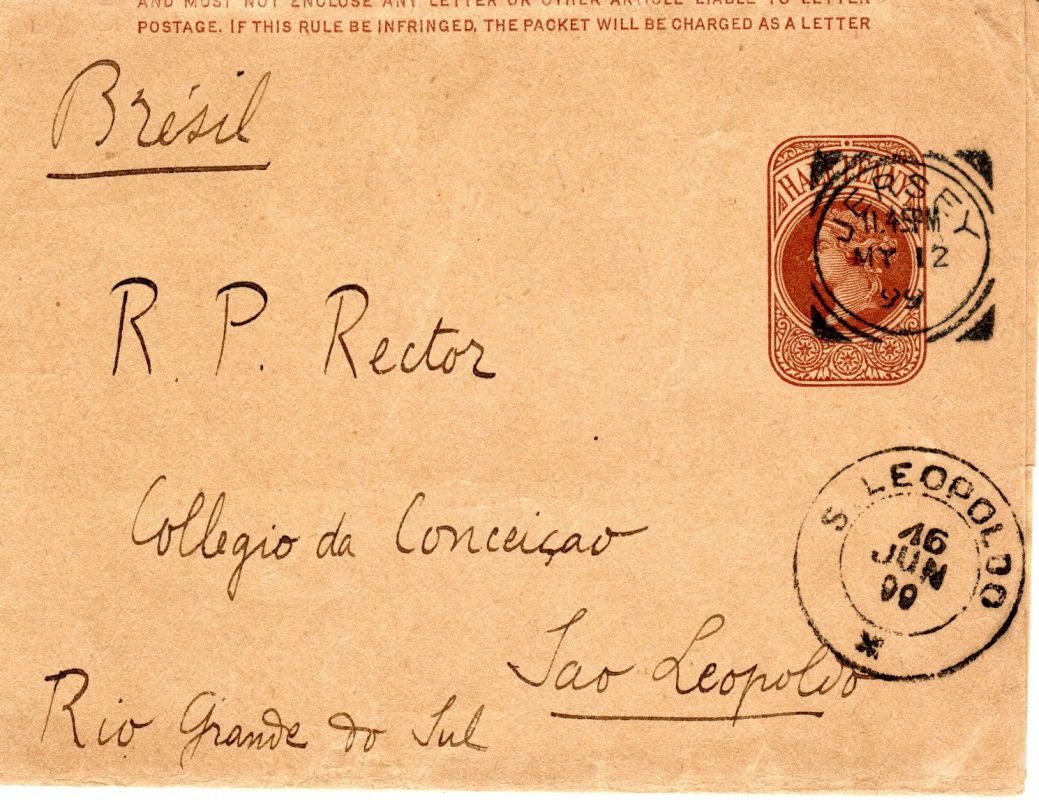 AND MUST NOT ENCLOSE ANY LETTER OR OTHER ARTICLE LIABLE TO LETTER
POSTAGE. IF THIS RULE BE INFRINGED, THE PACKET WILL BE CHARGED AS A LETTER
Brésil
HALFPENNY
JERSEY
11.45PM
MY 12
99
R. P. Rector
Collegio da Conceiçao
S. LEOPOLDO
16
JUN
99
Sao Leopoldo
Rio Grande do Sul